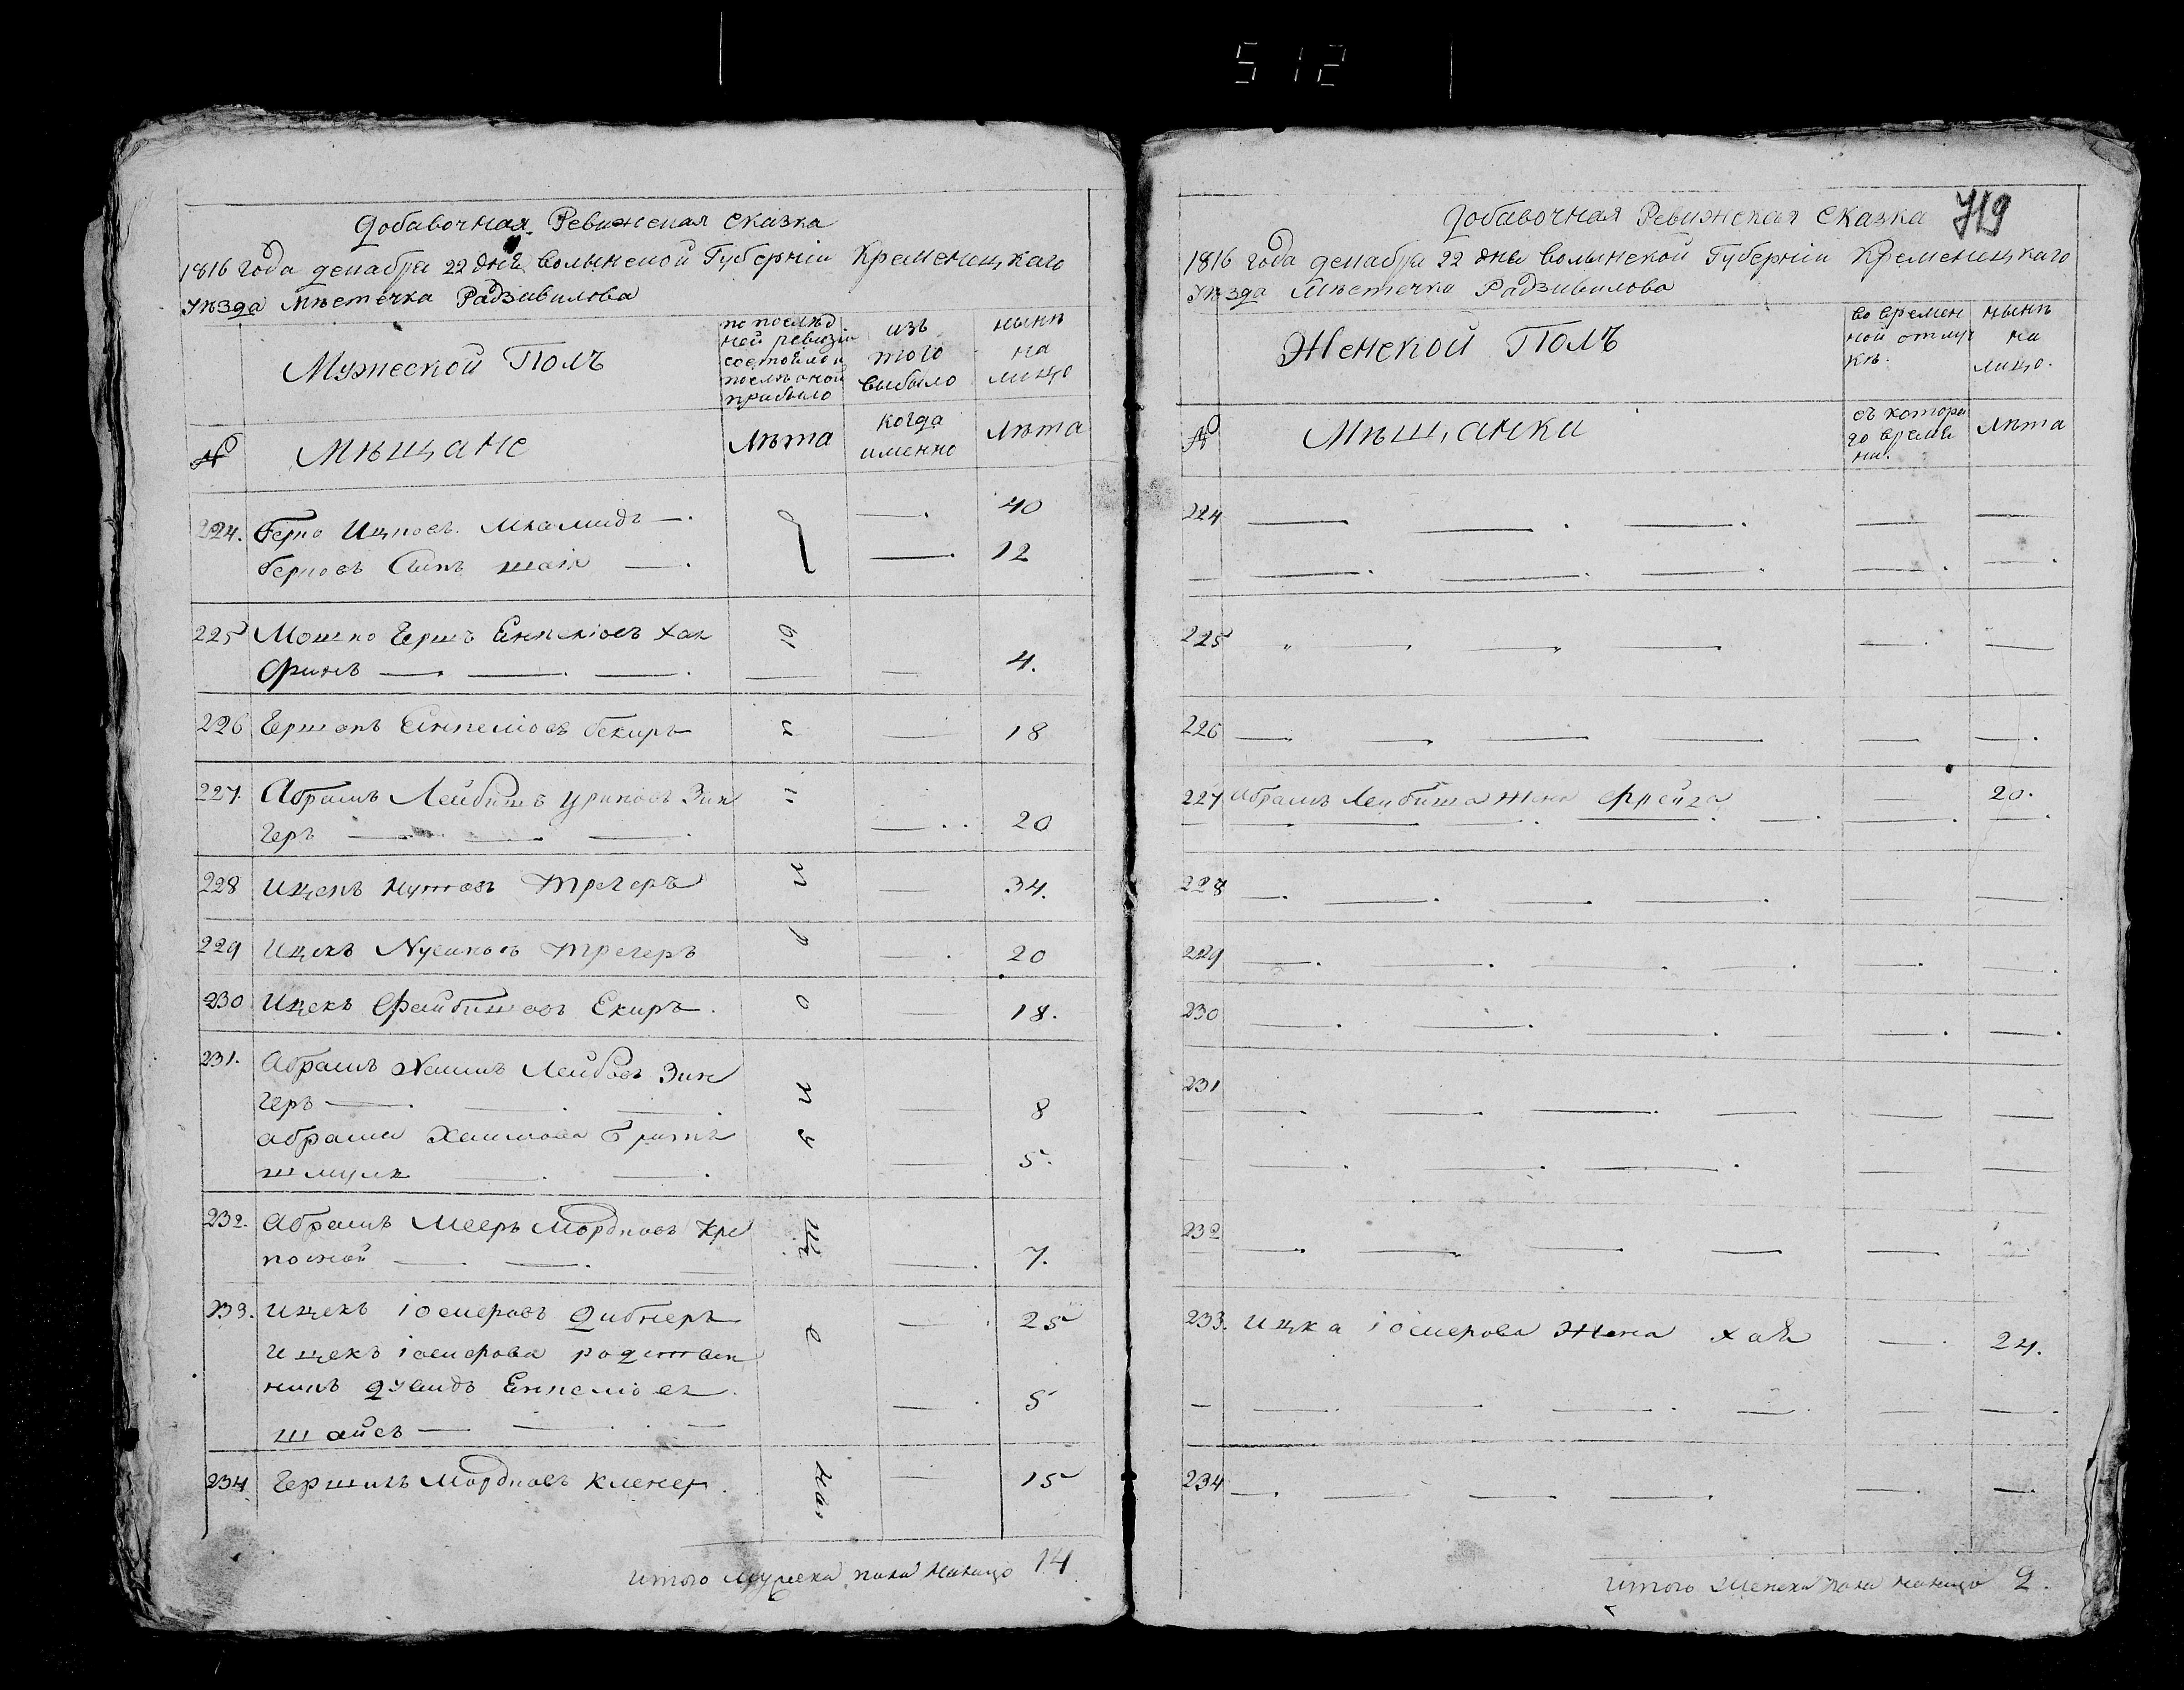 512
Добавочная Ревижская Сказка
1816 года декабря 22 дня Волынской Губерніи Кременицкаго
Уѣзда Мѣстечка Радзивилова
Мужеской Полъ
по послѣд
ной ревизіи
состояло и
послѣ оной
прибыло
изъ
того
выбыло
нынѣ
на
лицо
№
Мѣщане
Лѣта
когда
именно
Лѣта
224. Берко Ицковъ — 40
Берковъ Сынъ — 12
225 Мошко Гершъ Енкеліовъ Хак
финъ — 4.
226 Гершонъ Енкеліовъ Бекиръ — 18
227. Абрамъ Лейбишъ Зин
геръ — 20
228 Ицекъ Нутовъ Трегеръ — 34.
229 Ицекъ Нусиновъ Трегеръ — 20
230 Ицекъ Файбишовъ Екиръ — 18.
231. Абрамъ Хаимъ Лейбовъ Зин
геръ — 8
абрама Хаимова Братъ
шмуля — 5.
232. Абрамъ Мееръ Мордковъ Кре
поской — 7.
233. Ицекъ іосиеровъ Дибнеръ — 25
Ицекъ іосиерова родствен
никъ Енкеліовъ — 5
шайсъ —
234 Гершилъ Мордковъ Кленер. — 15
Итого Мужеска пола налицо 14
719
Добавочная Ревижская Сказка
1816 года декабря 22 дня Волынской Губерніи Кременицкаго
Уѣзда Мѣстечка Радзивилова
Женской Полъ
во времен
ной отлуч
кѣ.
нынѣ
на
лицо.
№
Мѣщанки
съ котора
го време
ни.
Лѣта
224
225
226
227 Абрамъ Лейбиша Жена Фрейга — 20.
228
229
230
231
232
233. Ицка іосиерова Жена Хая — 24.
234
Итого Женска пола налицо 2.